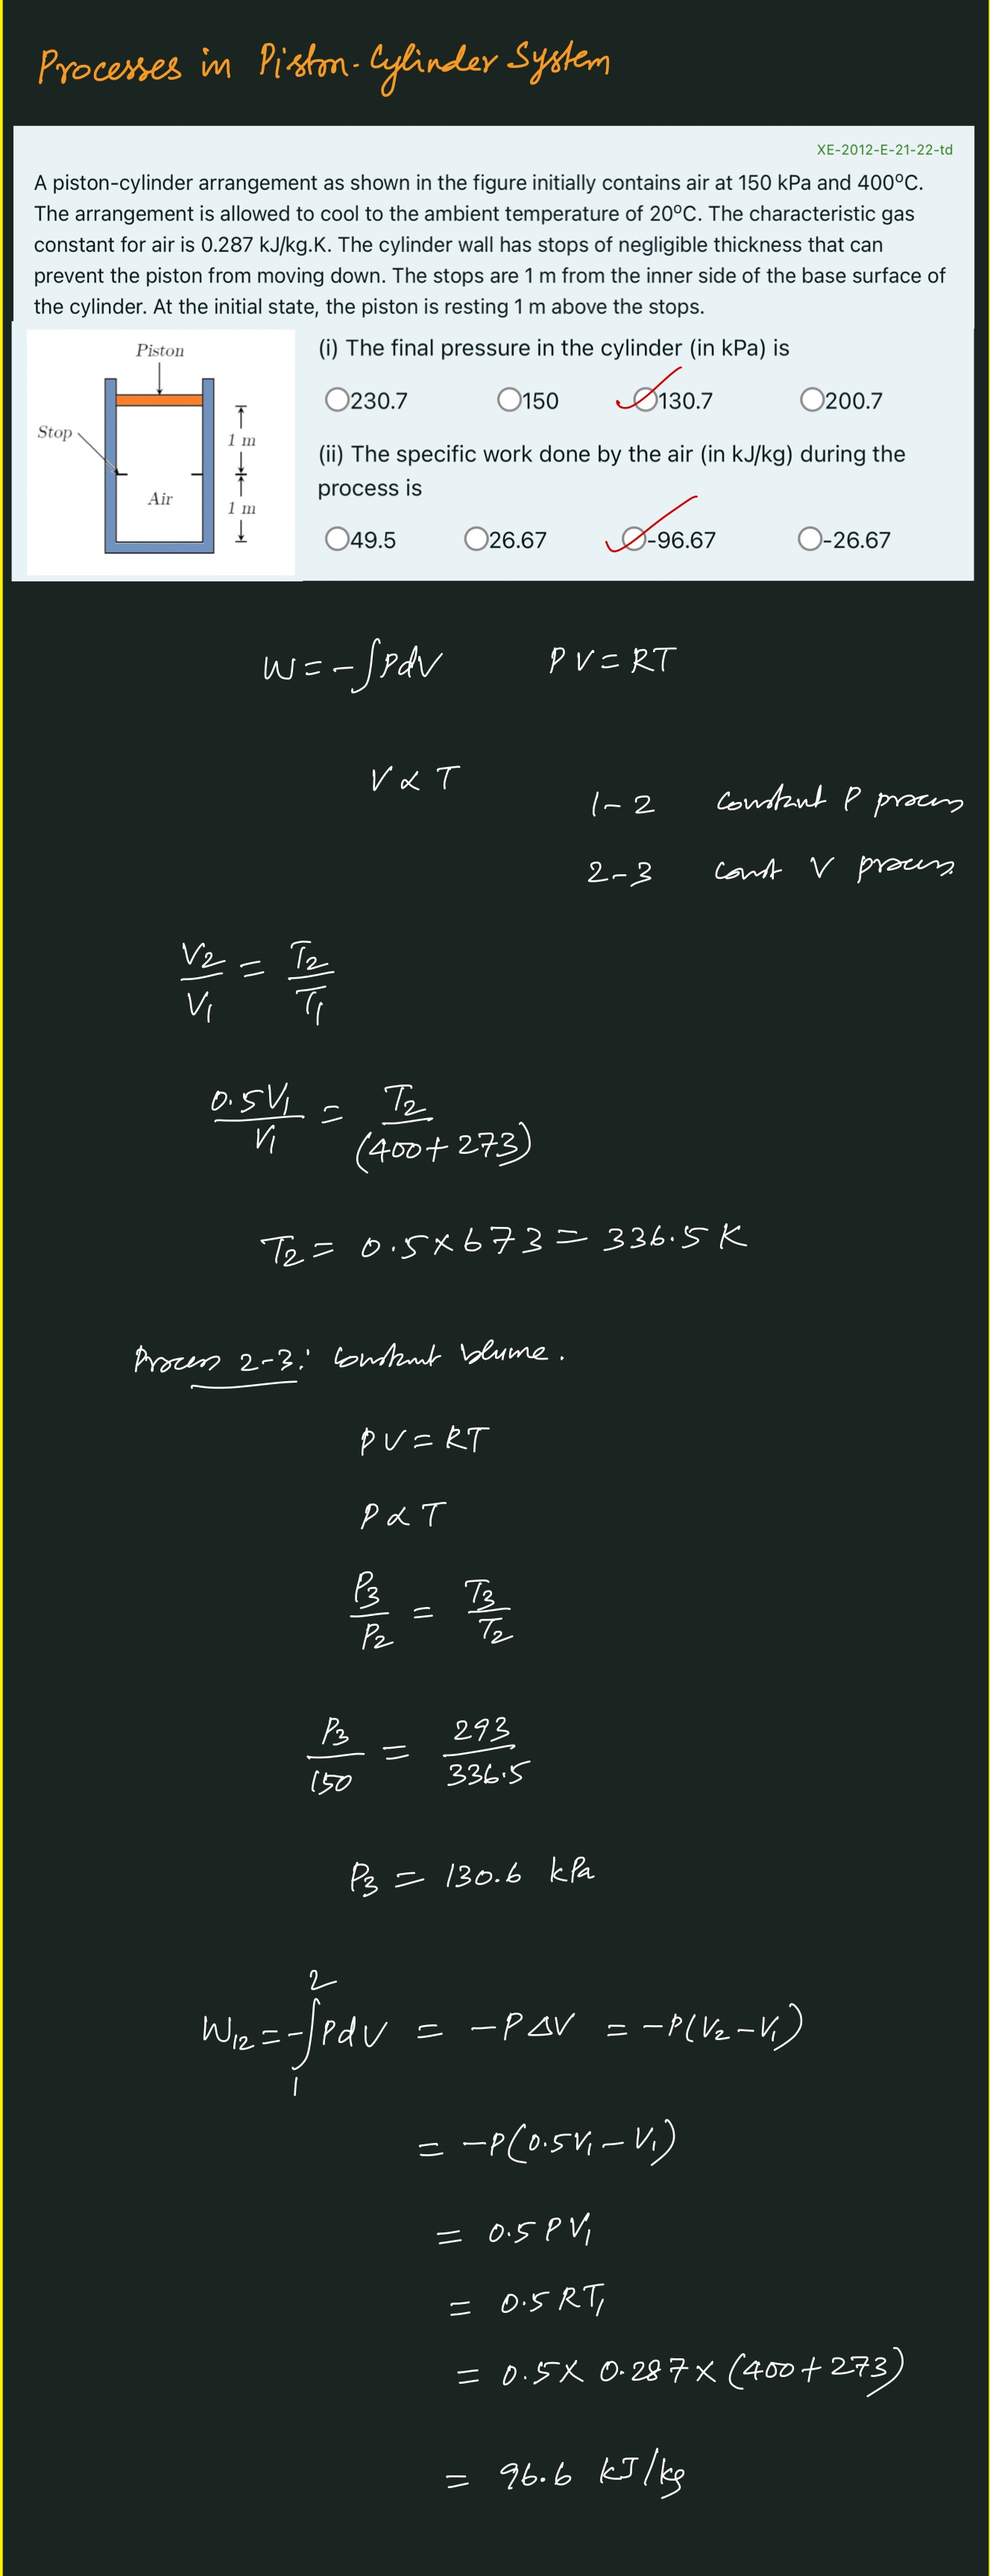 Processes in Piston-Cylinder System
XE-2012-E-21-22-td
A piston-cylinder arrangement as shown in the figure initially contains air at 150 kPa and 400ºC.
The arrangement is allowed to cool to the ambient temperature of 20ºC. The characteristic gas
constant for air is 0.287 kJ/kg.K. The cylinder wall has stops of negligible thickness that can
prevent the piston from moving down. The stops are 1 m from the inner side of the base surface of
the cylinder. At the initial state, the piston is resting 1 m above the stops.
Piston
Stop
1 m
Air
1 m
(i) The final pressure in the cylinder (in kPa) is
230.7 150 130.7 200.7
(ii) The specific work done by the air (in kJ/kg) during the
process is
49.5 26.67 -96.67 -26.67
W = -∫PdV PV = RT
V ∝ T
1-2 constant P process
2-3 const V process.
V2/V1 = T2/T1
0.5V1/V1 = T2/(400+273)
T2 = 0.5×673 = 336.5 K
Process 2-3: constant volume.
PV = RT
P ∝ T
P3/P2 = T3/T2
P3/150 = 293/336.5
P3 = 130.6 kPa
W12 = -∫₁² PdV = -PΔV = -P(V2-V1)
= -P(0.5V1-V1)
= 0.5PV1
= 0.5RT1
= 0.5×0.287×(400+273)
= 96.6 kJ/kg